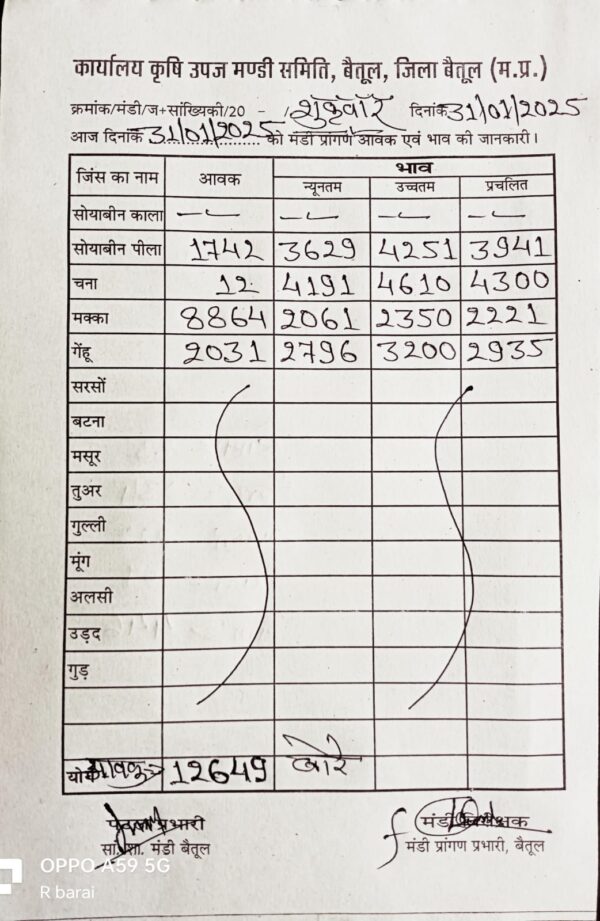 कार्यालय कृषि उपज मण्डी समिति, बैतूल, जिला बैतूल (म.प्र.)
क्रमांक/मंडी/ज+सांख्यिकी/20 - / दिनांक 31/01/2025
आज दिनांक 31/01/2025 को मंडी प्रांगण आवक एवं भाव की जानकारी।
जिंस का नाम आवक भाव
न्यूनतम उच्चतम प्रचलित
सोयाबीन काला
सोयाबीन पीला 1742 3629 4251 3941
चना 12 4191 4610 4300
मक्का 8864 2061 2350 2221
गेंहू 2031 2796 3200 2935
सरसों
बटना
मसूर
तुअर
गुल्ली
मूंग
अलसी
उड़द
गुड़
12649 बोरे
प्रभारी
मंडी बैतूल
मंडी
मंडी प्रांगण प्रभारी, बैतूल
OPPO A59 5G
R barai